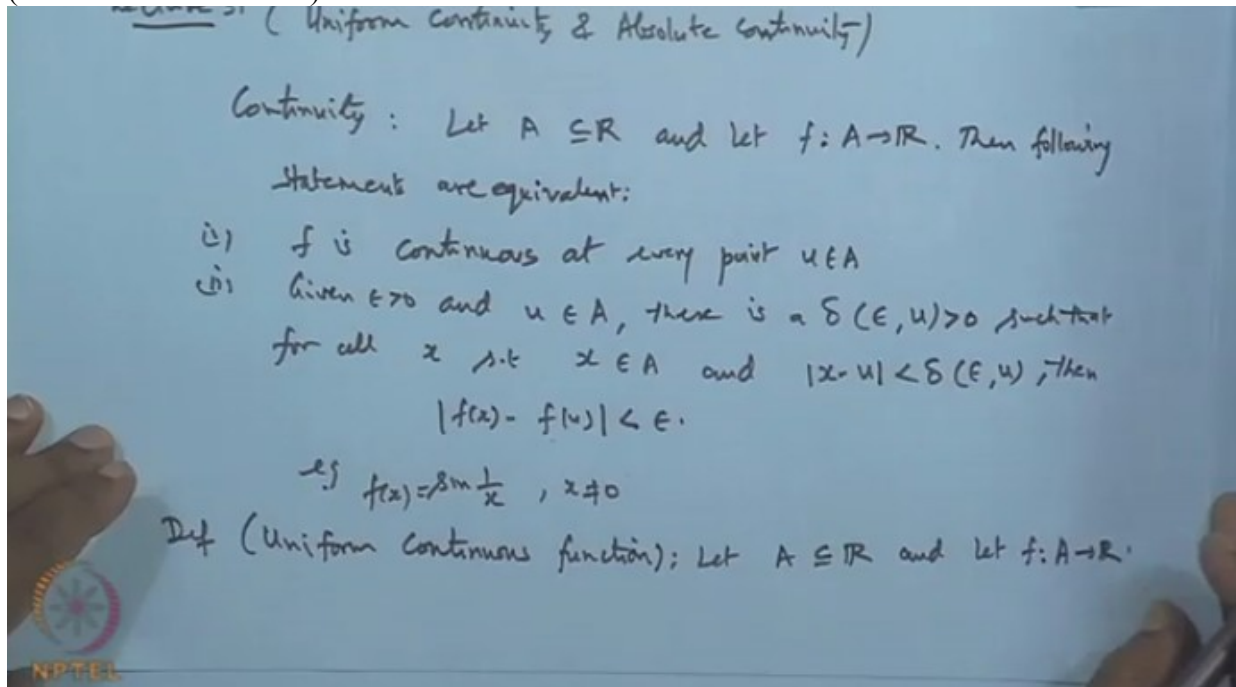 Lecture 31 ( Uniform Continuity & Absolute Continuity )
Continuity : Let A ⊆ R and let f : A → R. Then following
statements are equivalent:
(i) f is continuous at every point u ∈ A
(ii) Given ε>0 and u ∈ A, there is a δ (ε, u)>0 such that
for all x s.t x ∈ A and |x-u| < δ (ε, u), then
|f(x) - f(u)| < ε.
eg f(x) = sin 1/x , x ≠ 0
Def (Uniform Continuous function): Let A ⊆ R and let f: A → R.
NPTEL